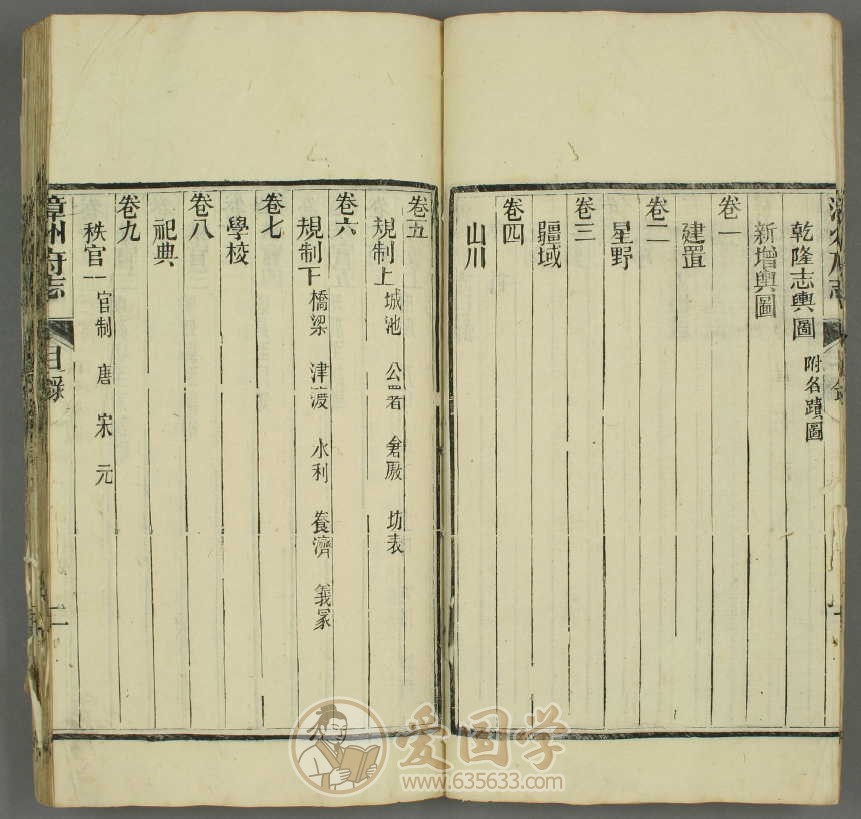 乾隆志輿圖 附名蹟圖
新增輿圖
卷一
建置
卷二
星野
卷三
疆域
卷四
山川
卷五
規制上 城池 公署 倉廒 坊表
卷六
規制下 橋梁 津渡 水利 養濟 義冢
卷七
學校
卷八
祀典
卷九
秩官一 官制 唐 宋 元
漳州府志 目錄 二
爱国学
www.635633.com